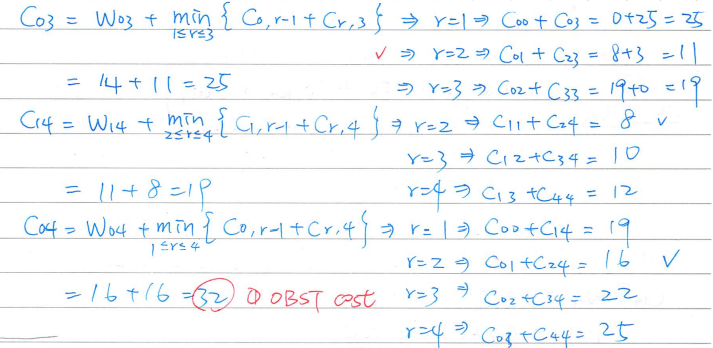 C03 = W03 + min 1≤r≤3 { C0,r-1 + Cr,3 } ⇒ r=1 ⇒ C00 + C03 = 0+25 = 25
✓ ⇒ r=2 ⇒ C01 + C23 = 8+3 = 11
= 14 + 11 = 25 ⇒ r=3 ⇒ C02 + C33 = 19+0 = 19
C14 = W14 + min 2≤r≤4 { C1,r-1 + Cr,4 } ⇒ r=2 ⇒ C11 + C24 = 8 ✓
r=3 ⇒ C12 + C34 = 10
= 11 + 8 = 19 r=4 ⇒ C13 + C44 = 12
C04 = W04 + min 1≤r≤4 { C0,r-1 + Cr,4 } ⇒ r=1 ⇒ C00 + C14 = 19
r=2 ⇒ C01 + C24 = 16 ✓
= 16 + 16 = 32 ① OBST cost r=3 ⇒ C02 + C34 = 22
r=4 ⇒ C03 + C44 = 25